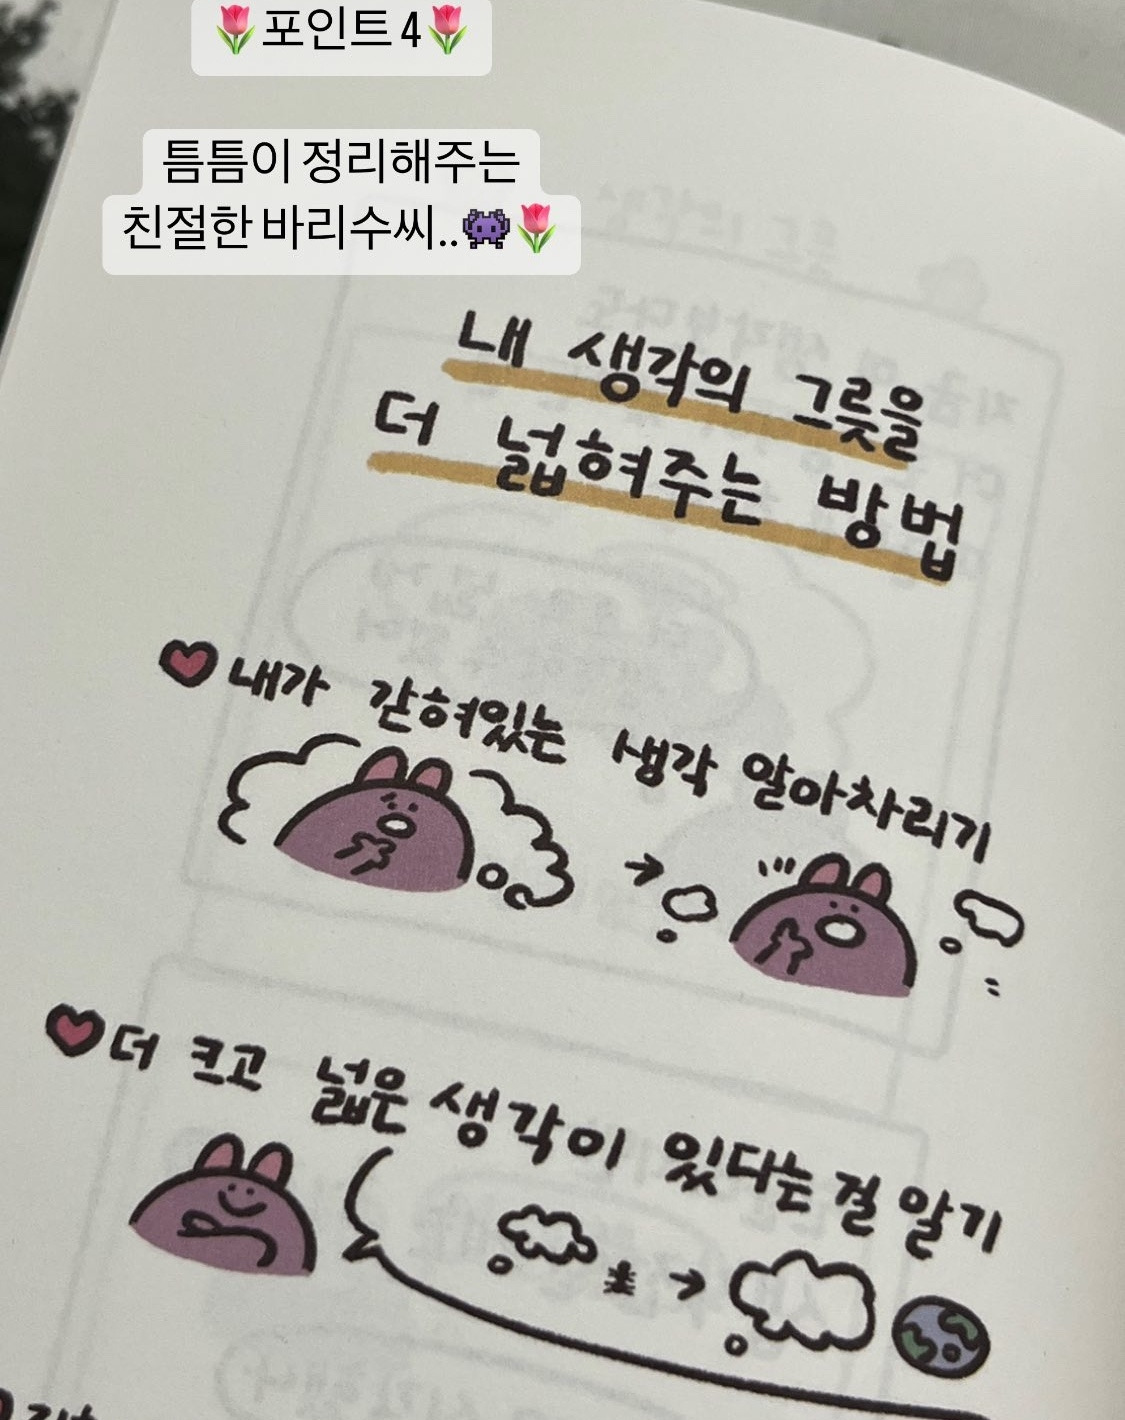 🌷포인트 4🌷
틈틈이 정리해주는
친절한 바리수씨..👾🌷
내 생각의 그릇을
더 넓혀주는 방법
내가 갇혀있는 생각 알아차리기
더 크고 넓은 생각이 있다는 걸 알기